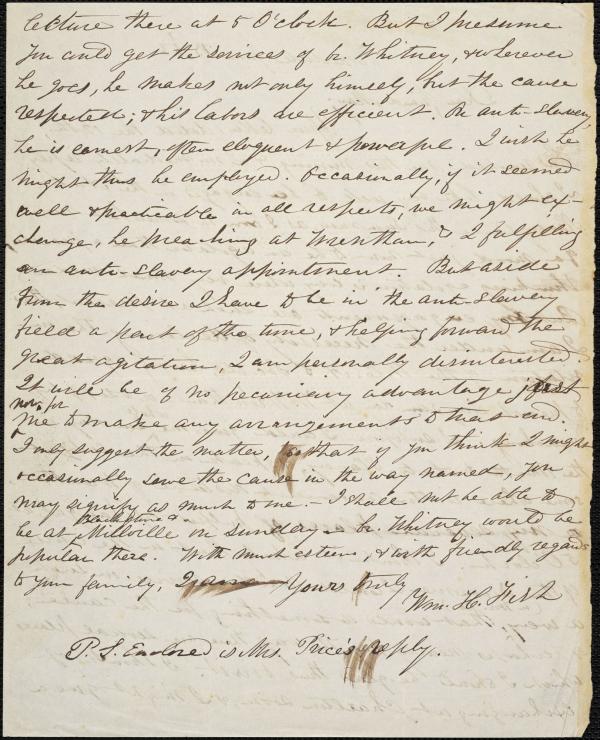 lecture there at 5 O'clock. But I presume
you could get the services of br. Whitney, & wherever
he goes, he makes not only himself, but the cause
respected; & his labors are efficient. On anti-slavery,
he is earnest, often eloquent & powerful. I wish he
might thus be employed. Occasionally, if it seemed
well & practicable in all respects, we might ex-
change, he preaching at Wrentham, & I fulfilling
an anti-slavery appointment. But aside
from the desire I have to be in the anti-slavery
field a part of the time, & helping forward the
great agitation, I am personally disinterested.
It will be of no pecuniary advantage just
now, for
me to make any arrangements to that end.
I only suggest the matter, so that if you think I might
occasionally serve the cause in the way named, you
may signify as much to me. - I shall not be able to
Blackstone &
be at Millville on Sunday - br. Whitney would be
popular there. With much esteem, & with friendly regards
to your family, I am Yours truly
Wm. H. Fish
P.S. Enclosed is Mrs. Price's reply.